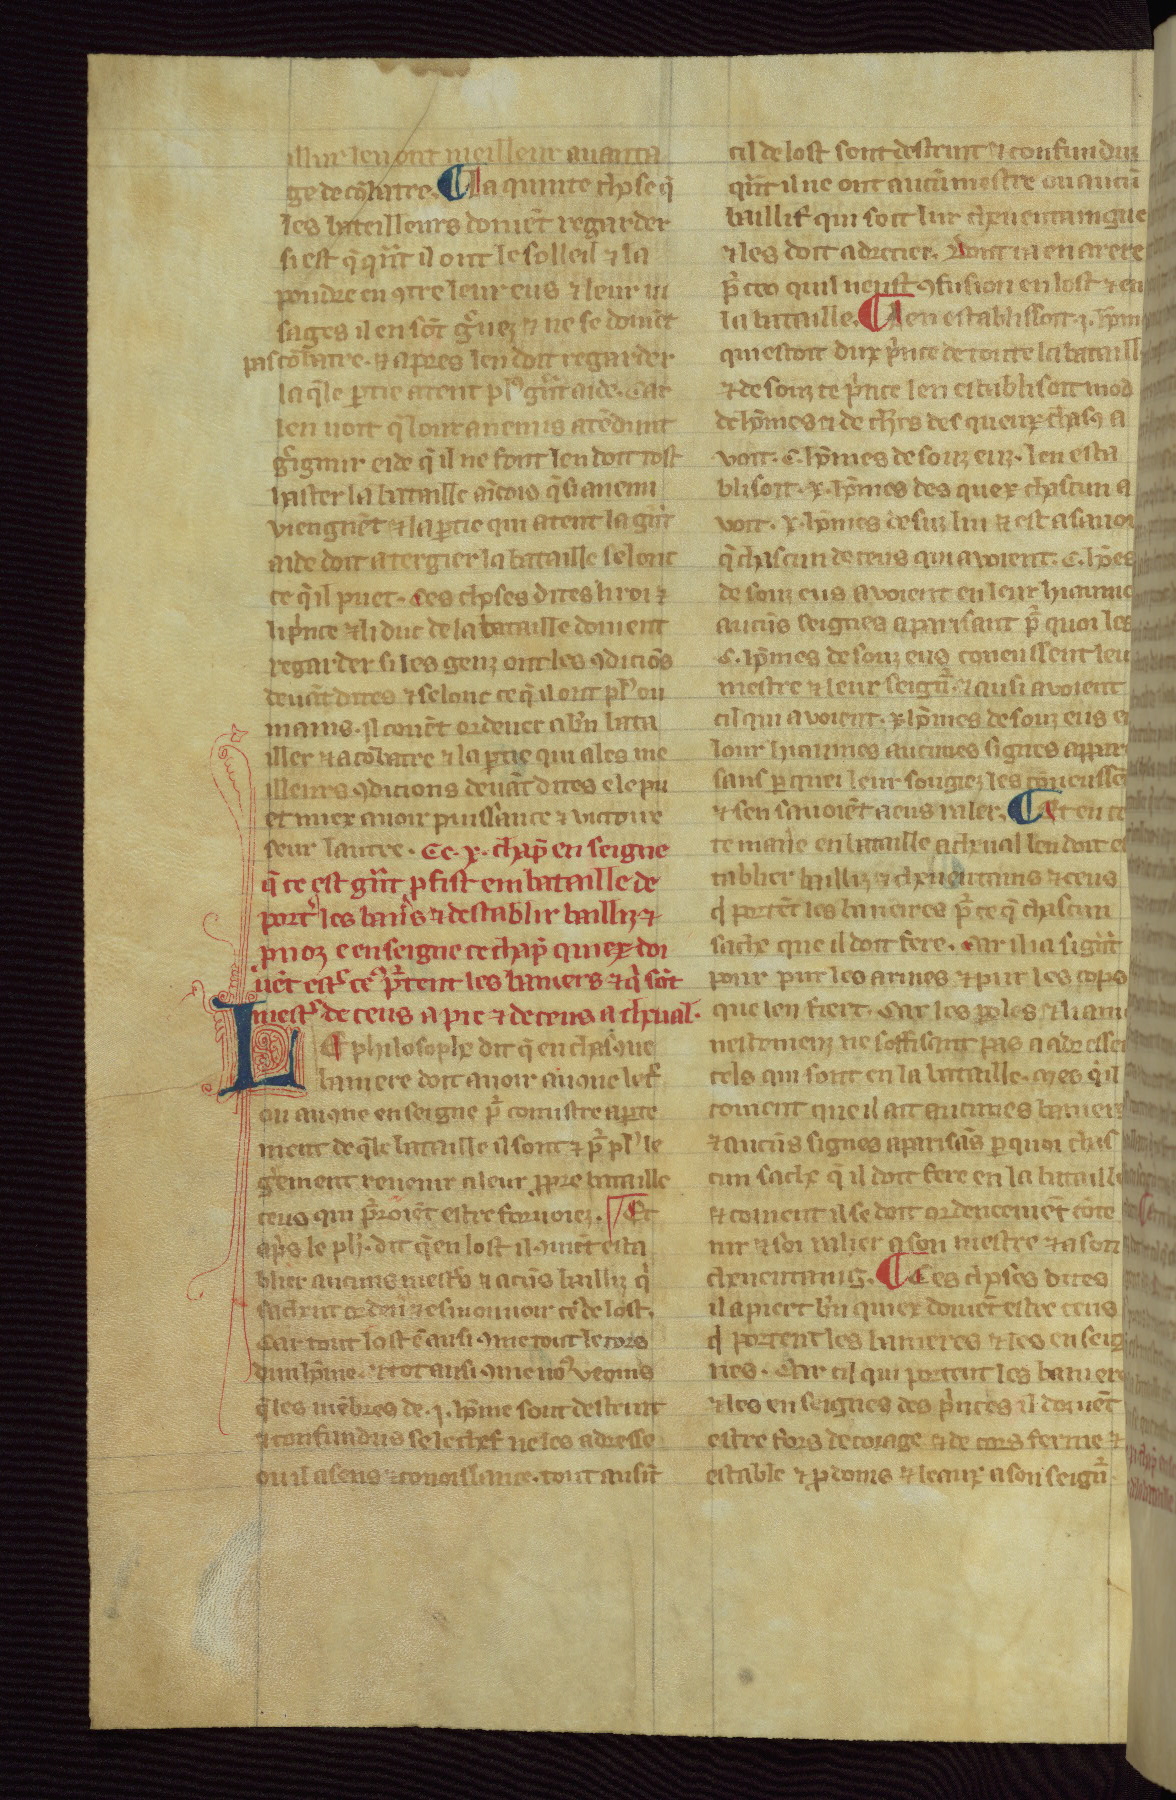 illur len ont meilleur auanta
ge de cōbatre. La quinte chose q̄
les bateilleurs doiuēt regarder
si est q̄ qūt il ont le solleil ⁊ la
poudre en ꝯtre leur eus ⁊ leur ui
sages il en sōt g̃uez ⁊ ne se doiuēt
pas cōbatre. ⁊ apres len doit regarder
la q̄le ꝑtie atent pl᷒ gñt aide. Car
len uoit q̄ lour anemis atēdunt
haster la bataille aīcois q̄ si anemi
viengnēt ⁊ la ꝑtie qui atent la gñt
aide doit atergier la bataille selonc
ce q̄ il puet. Ces choses dites li roi ⁊
li p̃nce ⁊ li duc de la bataille doiuent
regarder si les genz ont les ꝯdiciōs
deuāt dites ⁊ selonc ce q̄ il ont pl᷒ ou
mains. Il couēt ordener a bñ bata
iller ⁊ a cōbatre ⁊ la ꝑtie qui a les me
illeurs ꝯdicions deuāt dites ele pu
et miex auoir puissance ⁊ victoire
seur lautre. Ce .x. chap̄ en seigne
q̄ ce est gñt ꝓfist em bataille de
port᷒ les banr̃s ⁊ destablir bailliz ⁊
puoz e enseigne ce chap̄ quiex doi
uēt est᷒ ce᷒ q̃ portent les baniers ⁊ q̃ sōt
mest᷒ de ceus a pie ⁊ de ceus a cheual.
LE philosophe dit q̄ en chasque
baniere doit auoir auque let᷒
ou auque enseigne p̃ conistre aperte
ment de q̄le bataille il sont ⁊ p̃ pl᷒ le
g̃ement reuenir a leur ꝓpre bataille
ceus qui p̃roiēt estre foruoiez. Et
ap̃s le ph̃. dit q̄ en lost il ꝯuiēt esta
blier aucuns mestr̃s ⁊ acūs bailliz q̃
Car tout lost ē ausi ꝯme tout le cors
dun hōme. ⁊ tot ausi ꝯme no᷒ veons
q̄ les mēbres de .i. hōme sont destruit
⁊ confundus se le chef ne les adresse
ou il a sens ⁊ conoissance. tout ausit
cil de lost sont destruit ⁊ confunduz
qūt il ne ont aucū mestre ou aucū
baillif qui soit lur cheuentaingne
⁊ les doit adrecier. Dont en arere
p̃ ceo quil neust ꝯfusion en lost ⁊ en
la bataille. Len establissoit .i. hōm
qui estoit dux p̃nce de toute la bataill
⁊ de souz ce p̃nce len establisoit mod
de hōmes ⁊ de chr̃s des queux chasq̃ a
voit .c. hōmes de souz eux. len esta
blisoit .x. hōmes des quex chascun a
voit .x. hōmes de suz lui ⁊ est a sauoi
q̄ chascun de ceus qui auoient .c. hōes
de souz eus auoient en leur hiaume
aucūs seignes aparisant p̃ quoi les
.c. hōmes de souz eus coneussent leu
mestre ⁊ leur seigñ. ⁊ ausi auoient
cil qui auoient .x. hōmes de souz eus e
lour hiaumes aucunes signes appar
sans ꝑ quei leur sougiez les cōneussē
⁊ sen sauoiēt a eus ralier. Et en ce
te mañe en bataille a cheual len doit e
tablier bailliz ⁊ cheuentains ⁊ ceus
q̃ portēt les banieres p̃ ce q̄ chascun
sache que il doit fere. Car il i a sigñt
pour pur les armes ⁊ pur les cops
que len fiert. Car les ꝑoles ⁊ li am
nestemenz ne soffisent pas a adresse
cels qui sont en la bataille. mes q̄ il
couient que il ait aucunes baniers
⁊ aucūs signes aparisās ꝑ quoi chas
cun sache q̄ il doit fere en la bataille
⁊ coment il se doit ordeneemēt cōte
nir ⁊ soi ralier a son mestre ⁊ a son
cheuentaing. Ces choses dites
il apiert bñ quiex doiuēt estre ceus
q̃ portent les banieres ⁊ les enseig
nes. Car cil qui portent les banier
⁊ les enseignes des p̃nces il doiuēt
estre fors de corage ⁊ de cors ferme ⁊
estable ⁊ ꝓdoms ⁊ leaux a son seigñ